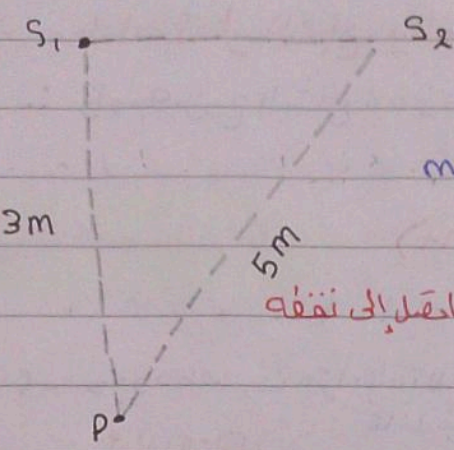 S₁ S₂
m
3m
5m
إلى نقطة
P